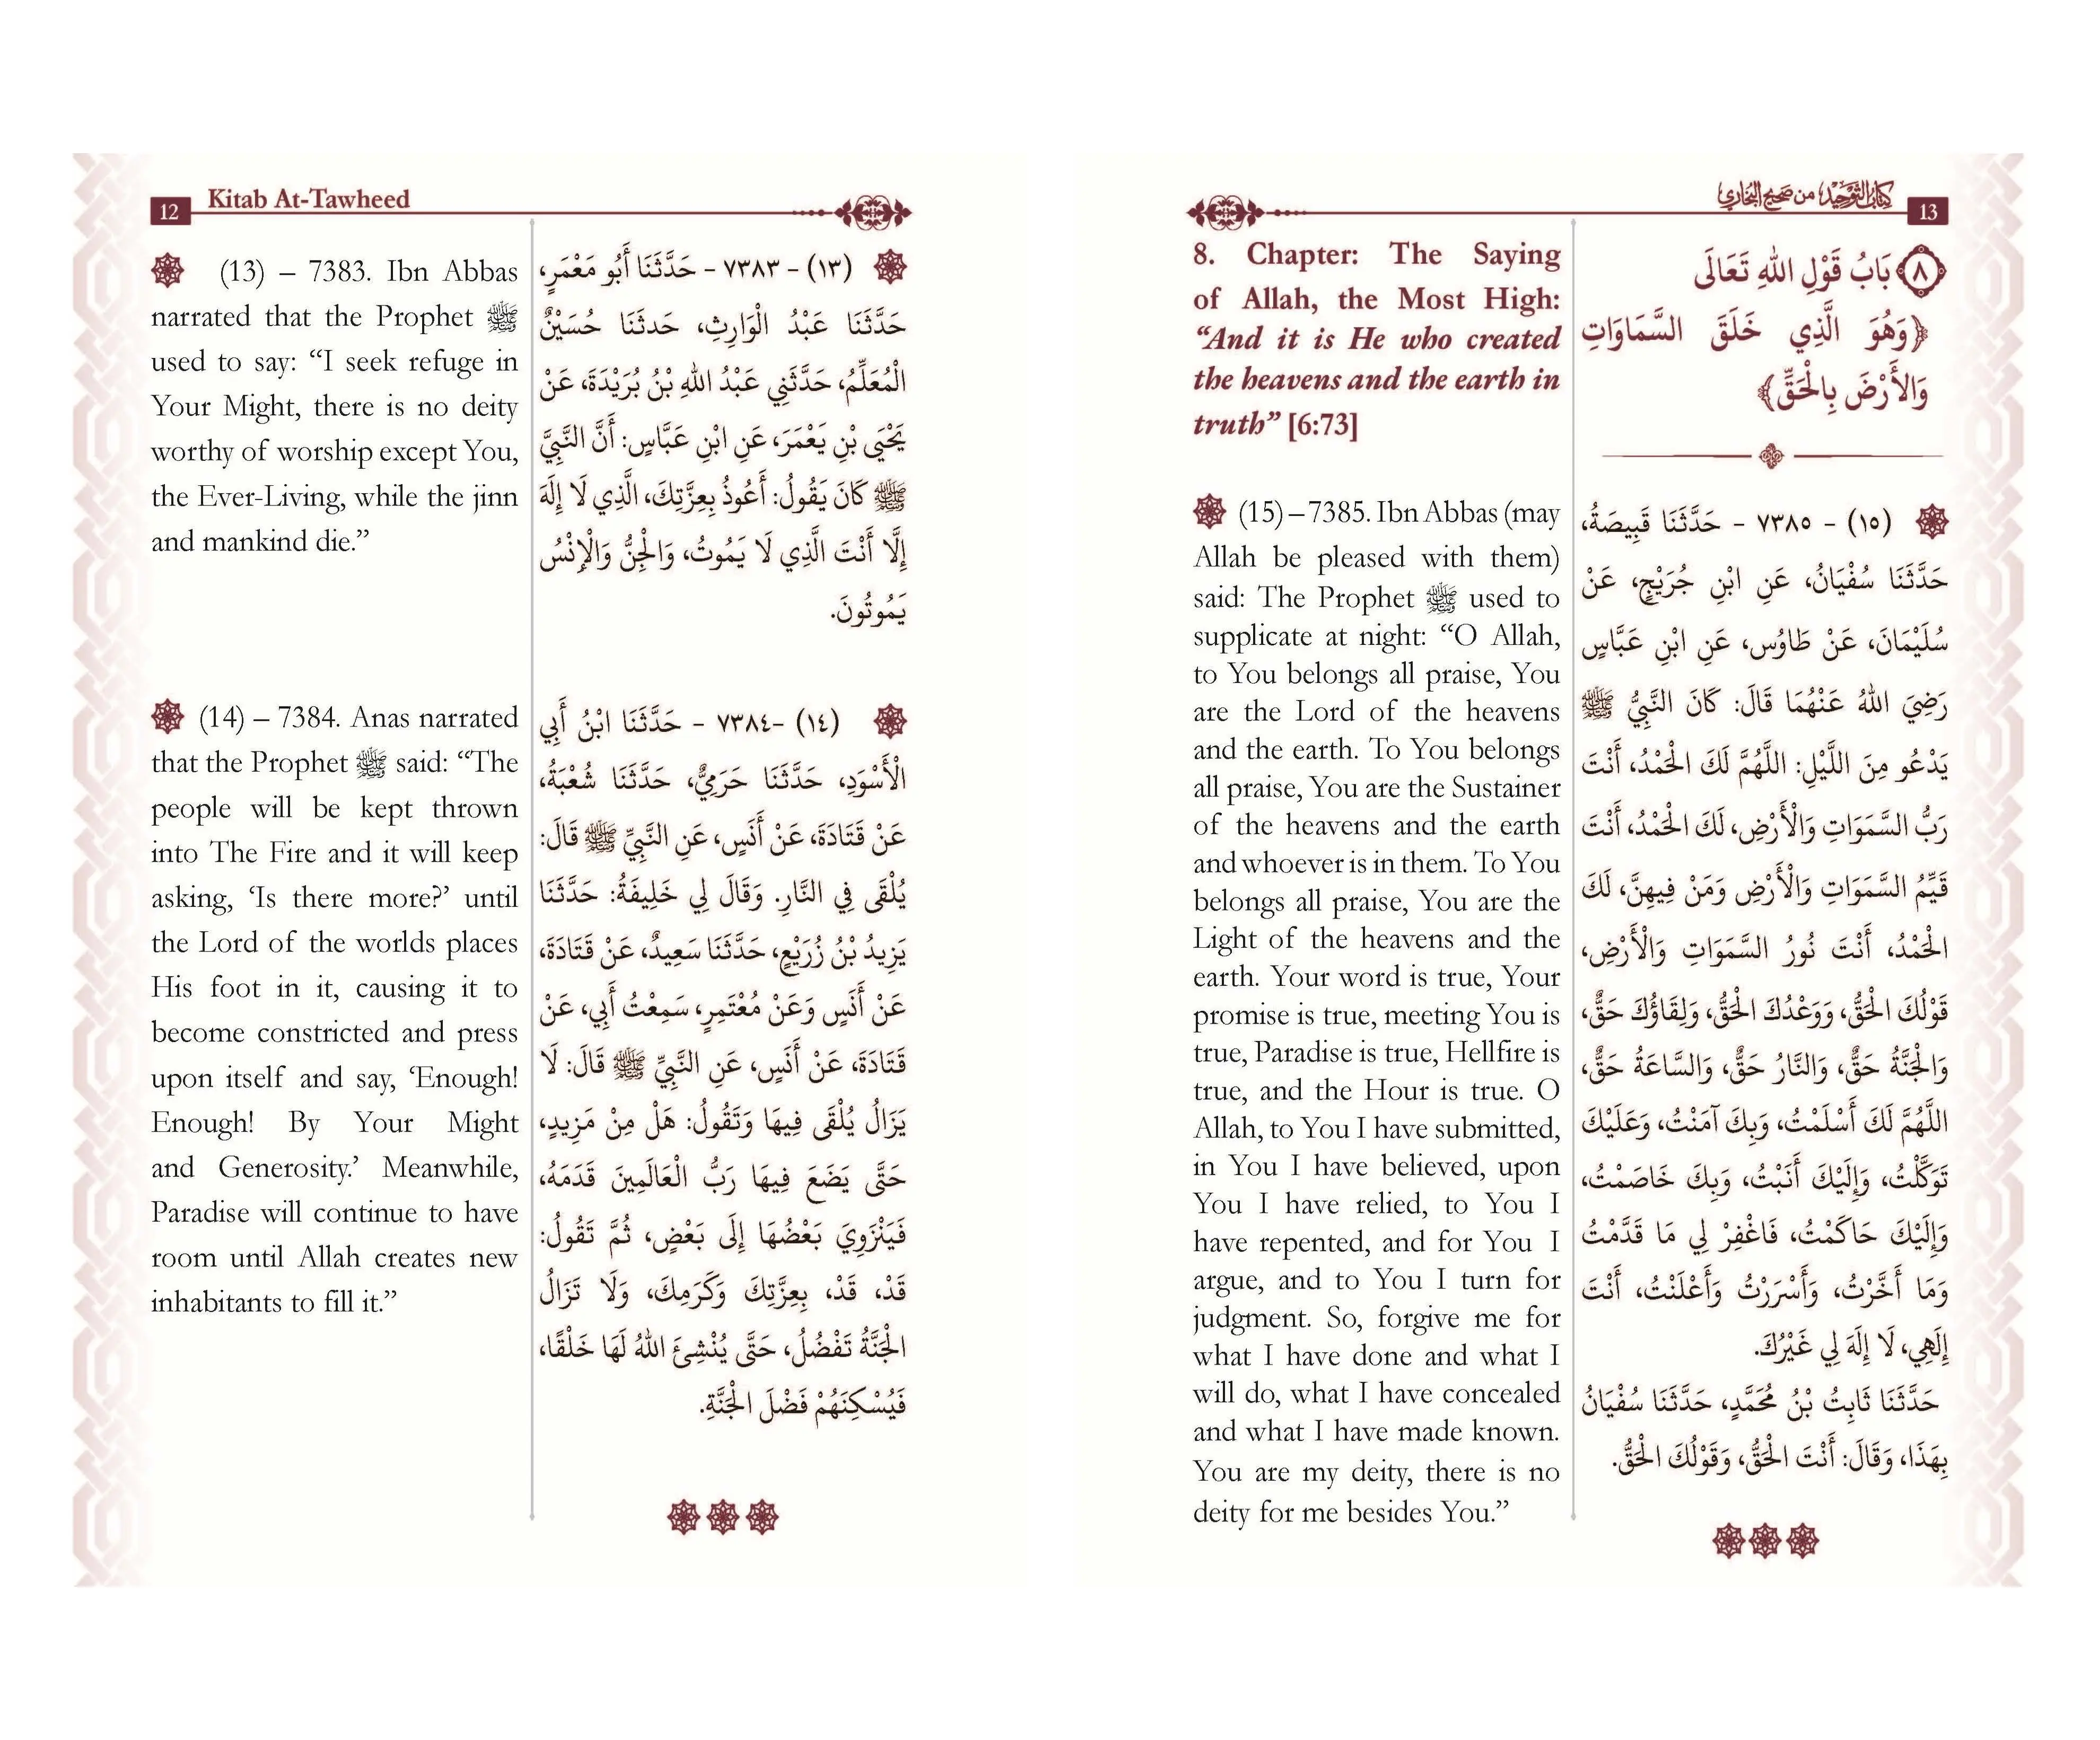 12 Kitab At-Tawheed
(13) – 7383. Ibn Abbas
narrated that the Prophet ﷺ
used to say: “I seek refuge in
Your Might, there is no deity
worthy of worship except You,
the Ever-Living, while the jinn
and mankind die.”
(14) – 7384. Anas narrated
that the Prophet ﷺ said: “The
people will be kept thrown
into The Fire and it will keep
asking, ‘Is there more?’ until
the Lord of the worlds places
His foot in it, causing it to
become constricted and press
upon itself and say, ‘Enough!
Enough! By Your Might
and Generosity.’ Meanwhile,
Paradise will continue to have
room until Allah creates new
inhabitants to fill it.”
(١٣) - ٧٣٨٣ - حَدَّثَنَا أَبُو مَعْمَرٍ،
حَدَّثَنَا عَبْدُ الْوَارِثِ، حَدثَنَا حُسَيْنٌ
الْمُعَلِّمُ، حَدَّثَنِي عَبْدُ اللهِ بْنُ بُرَيْدَةَ، عَنْ
يَحْيَى بْنِ يَعْمَرَ، عَنِ ابْنِ عَبَّاسٍ: أَنَّ النَّبِيَّ
ﷺ كَانَ يَقُولُ: أَعُوذُ بِعِزَّتِكَ، الَّذِي لَا إِلَهَ
إِلَّا أَنْتَ الَّذِي لَا يَمُوتُ، وَالْجِنُّ وَالْإِنْسُ
يَمُوتُونَ.
(١٤) -٧٣٨٤ - حَدَّثَنَا ابْنُ أَبِي
الْأَسْوَدِ، حَدَّثَنَا حَرَمِيٌّ، حَدَّثَنَا شُعْبَةُ،
عَنْ قَتَادَةَ، عَنْ أَنَسٍ، عَنِ النَّبِيِّ ﷺ قَالَ:
يُلْقَى فِي النَّارِ. وَقَالَ لِي خَلِيفَةُ: حَدَّثَنَا
يَزِيدُ بْنُ زُرَيْعٍ، حَدَّثَنَا سَعِيدٌ، عَنْ قَتَادَةَ،
عَنْ أَنَسٍ وَعَنْ مُعْتَمِرٍ، سَمِعْتُ أَبِي، عَنْ
قَتَادَةَ، عَنْ أَنَسٍ، عَنِ النَّبِيِّ ﷺ قَالَ: لَا
يَزَالُ يُلْقَى فِيهَا وَتَقُولُ: هَلْ مِنْ مَزِيدٍ،
حَتَّى يَضَعَ فِيهَا رَبُّ الْعَالَمِينَ قَدَمَهُ،
فَيَنْزَوِيَ بَعْضُهَا إِلَى بَعْضٍ، ثُمَّ تَقُولُ:
قَدْ، قَدْ، بِعِزَّتِكَ وَكَرَمِكَ، وَلَا تَزَالُ
الْجَنَّةُ تَفْضُلُ، حَتَّى يُنْشِئَ اللهُ لَهَا خَلْقًا،
فَيُسْكِنَهُمْ فَضْلَ الْجَنَّةِ.
كتاب التوحيد من صحيح البخاري 13
8. Chapter: The Saying
of Allah, the Most High:
“And it is He who created
the heavens and the earth in
truth” [6:73]
(15) – 7385. Ibn Abbas (may
Allah be pleased with them)
said: The Prophet ﷺ used to
supplicate at night: “O Allah,
to You belongs all praise, You
are the Lord of the heavens
and the earth. To You belongs
all praise, You are the Sustainer
of the heavens and the earth
and whoever is in them. To You
belongs all praise, You are the
Light of the heavens and the
earth. Your word is true, Your
promise is true, meeting You is
true, Paradise is true, Hellfire is
true, and the Hour is true. O
Allah, to You I have submitted,
in You I have believed, upon
You I have relied, to You I
have repented, and for You I
argue, and to You I turn for
judgment. So, forgive me for
what I have done and what I
will do, what I have concealed
and what I have made known.
You are my deity, there is no
deity for me besides You.”
٨ بَابُ قَوْلِ اللهِ تَعَالَى
﴿وَهُوَ الَّذِي خَلَقَ السَّمَاوَاتِ
وَالأَرْضَ بِالْحَقِّ﴾
(١٥) - ٧٣٨٥ - حَدَّثَنَا قَبِيصَةُ،
حَدَّثَنَا سُفْيَانُ، عَنِ ابْنِ جُرَيْجٍ، عَنْ
سُلَيْمَانَ، عَنْ طَاوُس، عَنِ ابْنِ عَبَّاسٍ
رَضِيَ اللهُ عَنْهُمَا قَالَ: كَانَ النَّبِيُّ ﷺ
يَدْعُو مِنَ اللَّيْلِ: اللَّهُمَّ لَكَ الْحَمْدُ، أَنْتَ
رَبُّ السَّمَوَاتِ وَالْأَرْضِ، لَكَ الْحَمْدُ، أَنْتَ
قَيِّمُ السَّمَوَاتِ وَالْأَرْضِ وَمَنْ فِيهِنَّ، لَكَ
الْحَمْدُ، أَنْتَ نُورُ السَّمَوَاتِ وَالْأَرْضِ،
قَوْلُكَ الْحَقُّ، وَوَعْدُكَ الْحَقُّ، وَلِقَاؤُكَ حَقٌّ،
وَالْجَنَّةُ حَقٌّ، وَالنَّارُ حَقٌّ، وَالسَّاعَةُ حَقٌّ،
اللَّهُمَّ لَكَ أَسْلَمْتُ، وَبِكَ آمَنْتُ، وَعَلَيْكَ
تَوَكَّلْتُ، وَإِلَيْكَ أَنَبْتُ، وَبِكَ خَاصَمْتُ،
وَإِلَيْكَ حَاكَمْتُ، فَاغْفِرْ لِي مَا قَدَّمْتُ
وَمَا أَخَّرْتُ، وَأَسْرَرْتُ وَأَعْلَنْتُ، أَنْتَ
إِلَهِي، لَا إِلَهَ لِي غَيْرُكَ.
حَدَّثَنَا ثَابِتُ بْنُ مُحَمَّدٍ، حَدَّثَنَا سُفْيَانُ
بِهَذَا، وَقَالَ: أَنْتَ الْحَقُّ، وَقَوْلُكَ الْحَقُّ.